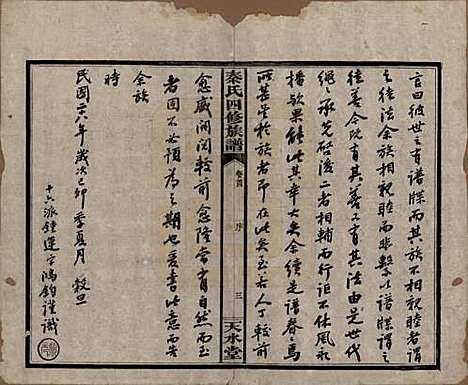 言曰彼世之有譜牒而其族不相親睦者謂
之徒法余族相親睦而非繫以譜牒謂之
徒善今既有其善又有其法由是世代
繩繩承先啓後二者相輔而行詎不休風永
播歟果能此其幸大矣余續是譜眷眷焉
所甚望於族者即在此矣至若人丁較前
秦氏四修族譜
卷之首
序
三
天水堂
愈盛閥閱較前愈隆當有自然而至
者固不必預為之期也爰書此意而告
余族
時
民國二十八年歲次己卯季夏月 穀旦
十六派鍾運字鴻鈞謹識